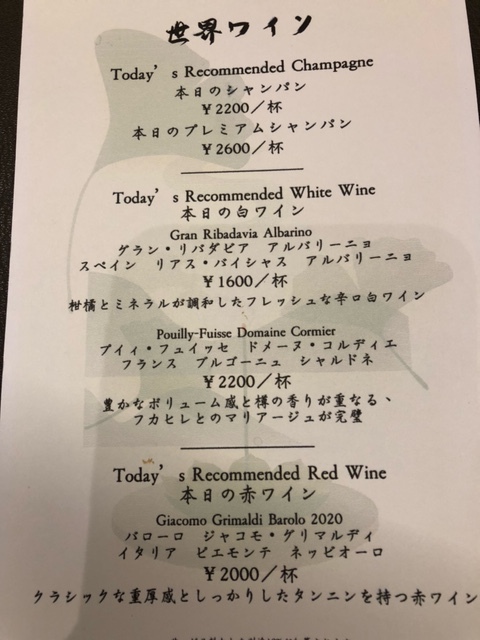 世界ワイン
Today's Recommended Champagne
本日のシャンパン
¥2200／杯
本日のプレミアムシャンパン
¥2600／杯
Today's Recommended White Wine
本日の白ワイン
Gran Ribadavia Albarino
グラン・リバダビア　アルバリーニョ
スペイン　リアス・バイシャス　アルバリーニョ
¥1600／杯
柑橘とミネラルが調和したフレッシュな辛口白ワイン
Pouilly-Fuisse Domaine Cormier
プイィ・フュイッセ　ドメーヌ・コルディエ
フランス　ブルゴーニュ　シャルドネ
¥2200／杯
豊かなボリューム感と樽の香りが重なる、
フカヒレとのマリアージュが完璧
Today's Recommended Red Wine
本日の赤ワイン
Giacomo Grimaldi Barolo 2020
バローロ　ジャコモ・グリマルディ
イタリア　ピエモンテ　ネッビオーロ
¥2000／杯
クラシックな重厚感としっかりしたタンニンを持つ赤ワイン